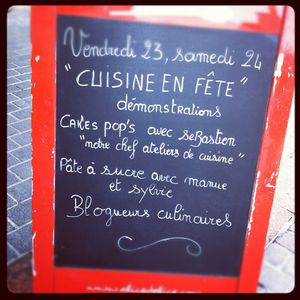 Vendredi 23, samedi 24
"CUISINE EN FÊTE"
démonstrations
CAKES POP'S avec SeBastien
"notre chef ateliers de cuisine"
Pâte à sucre avec manue
et sylvie
Blogueurs culinaires